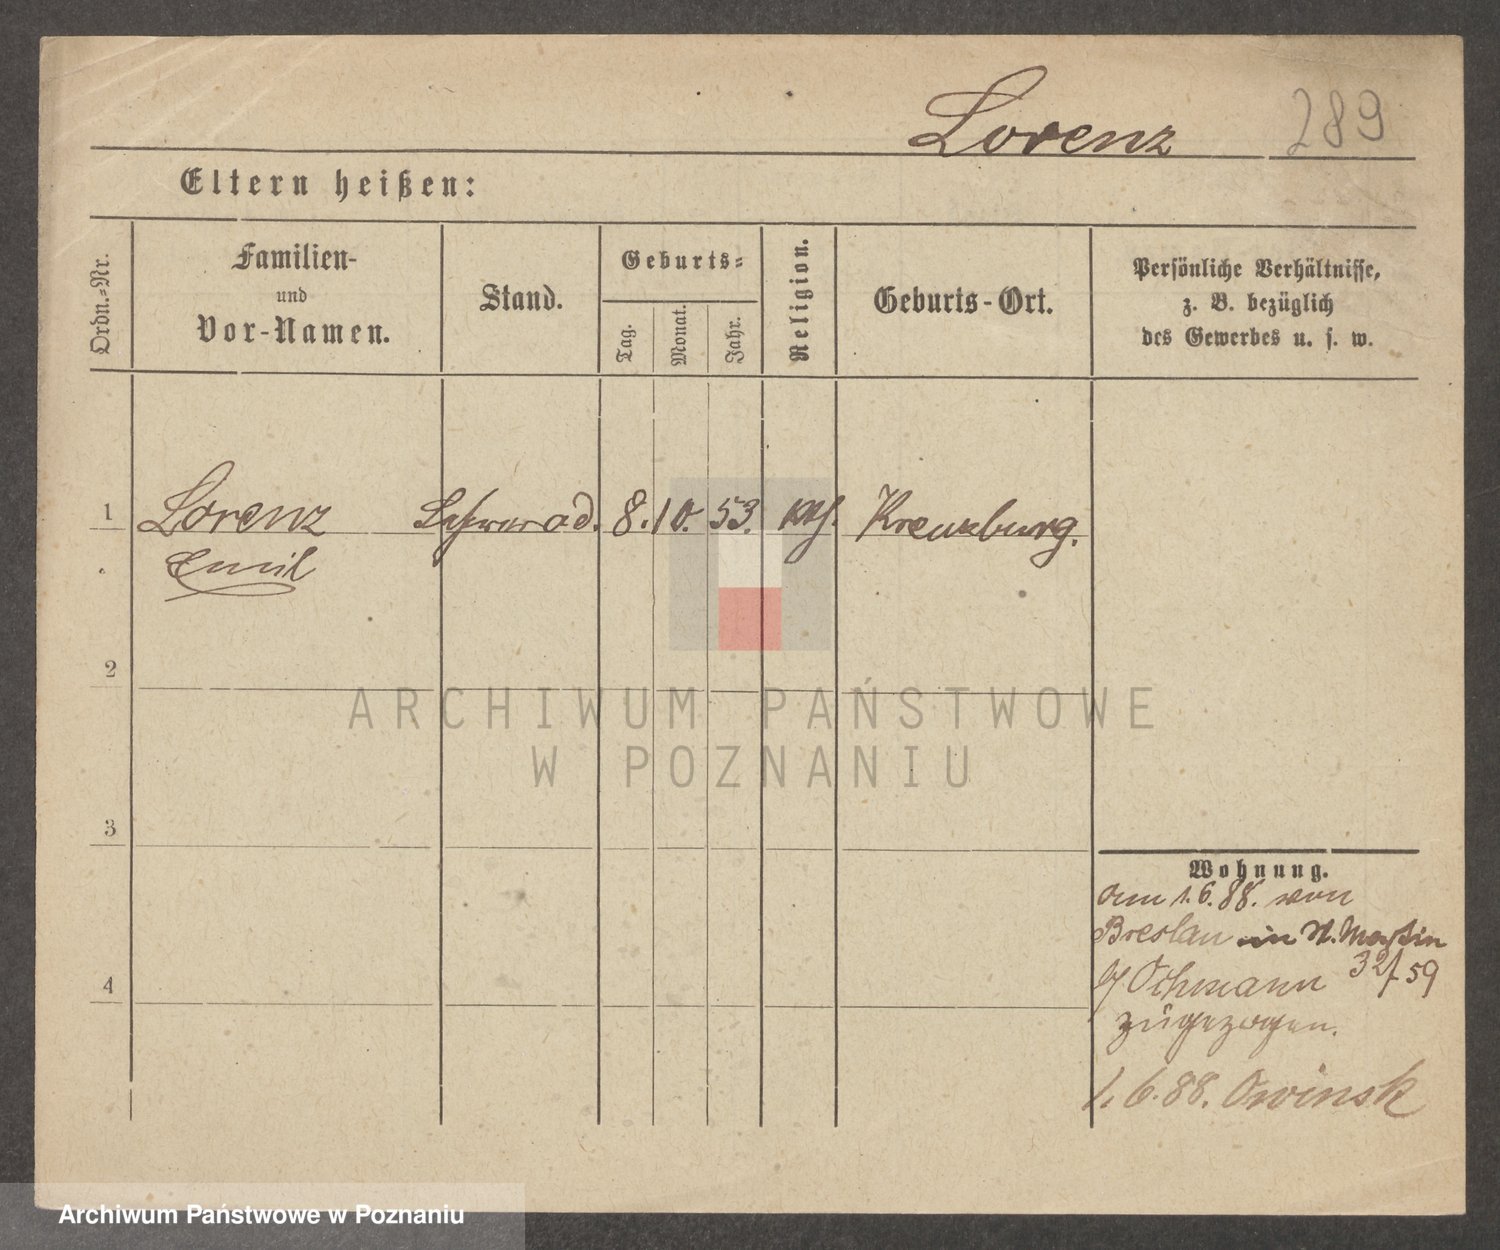 Lorenz 289
Eltern heißen:
Ordn.=Nr.
Familien-
und
Vor-Namen.
Stand.
Geburts=
Tag.
Monat.
Jahr.
Religion.
Geburts-Ort.
Persönliche Verhältnisse,
z. B. bezüglich
des Gewerbes u. s. w.
1 Lorenz 8. 10. 53. kth. Kreuzburg.
Emil
2
3
4
Wohnung.
1.6.88. von
Breslau in St. Martin
32/59
Othmann
zugezogen.
1.6.88. Owinsk
ARCHIWUM PAŃSTWOWE
W POZNANIU
Archiwum Państwowe w Poznaniu